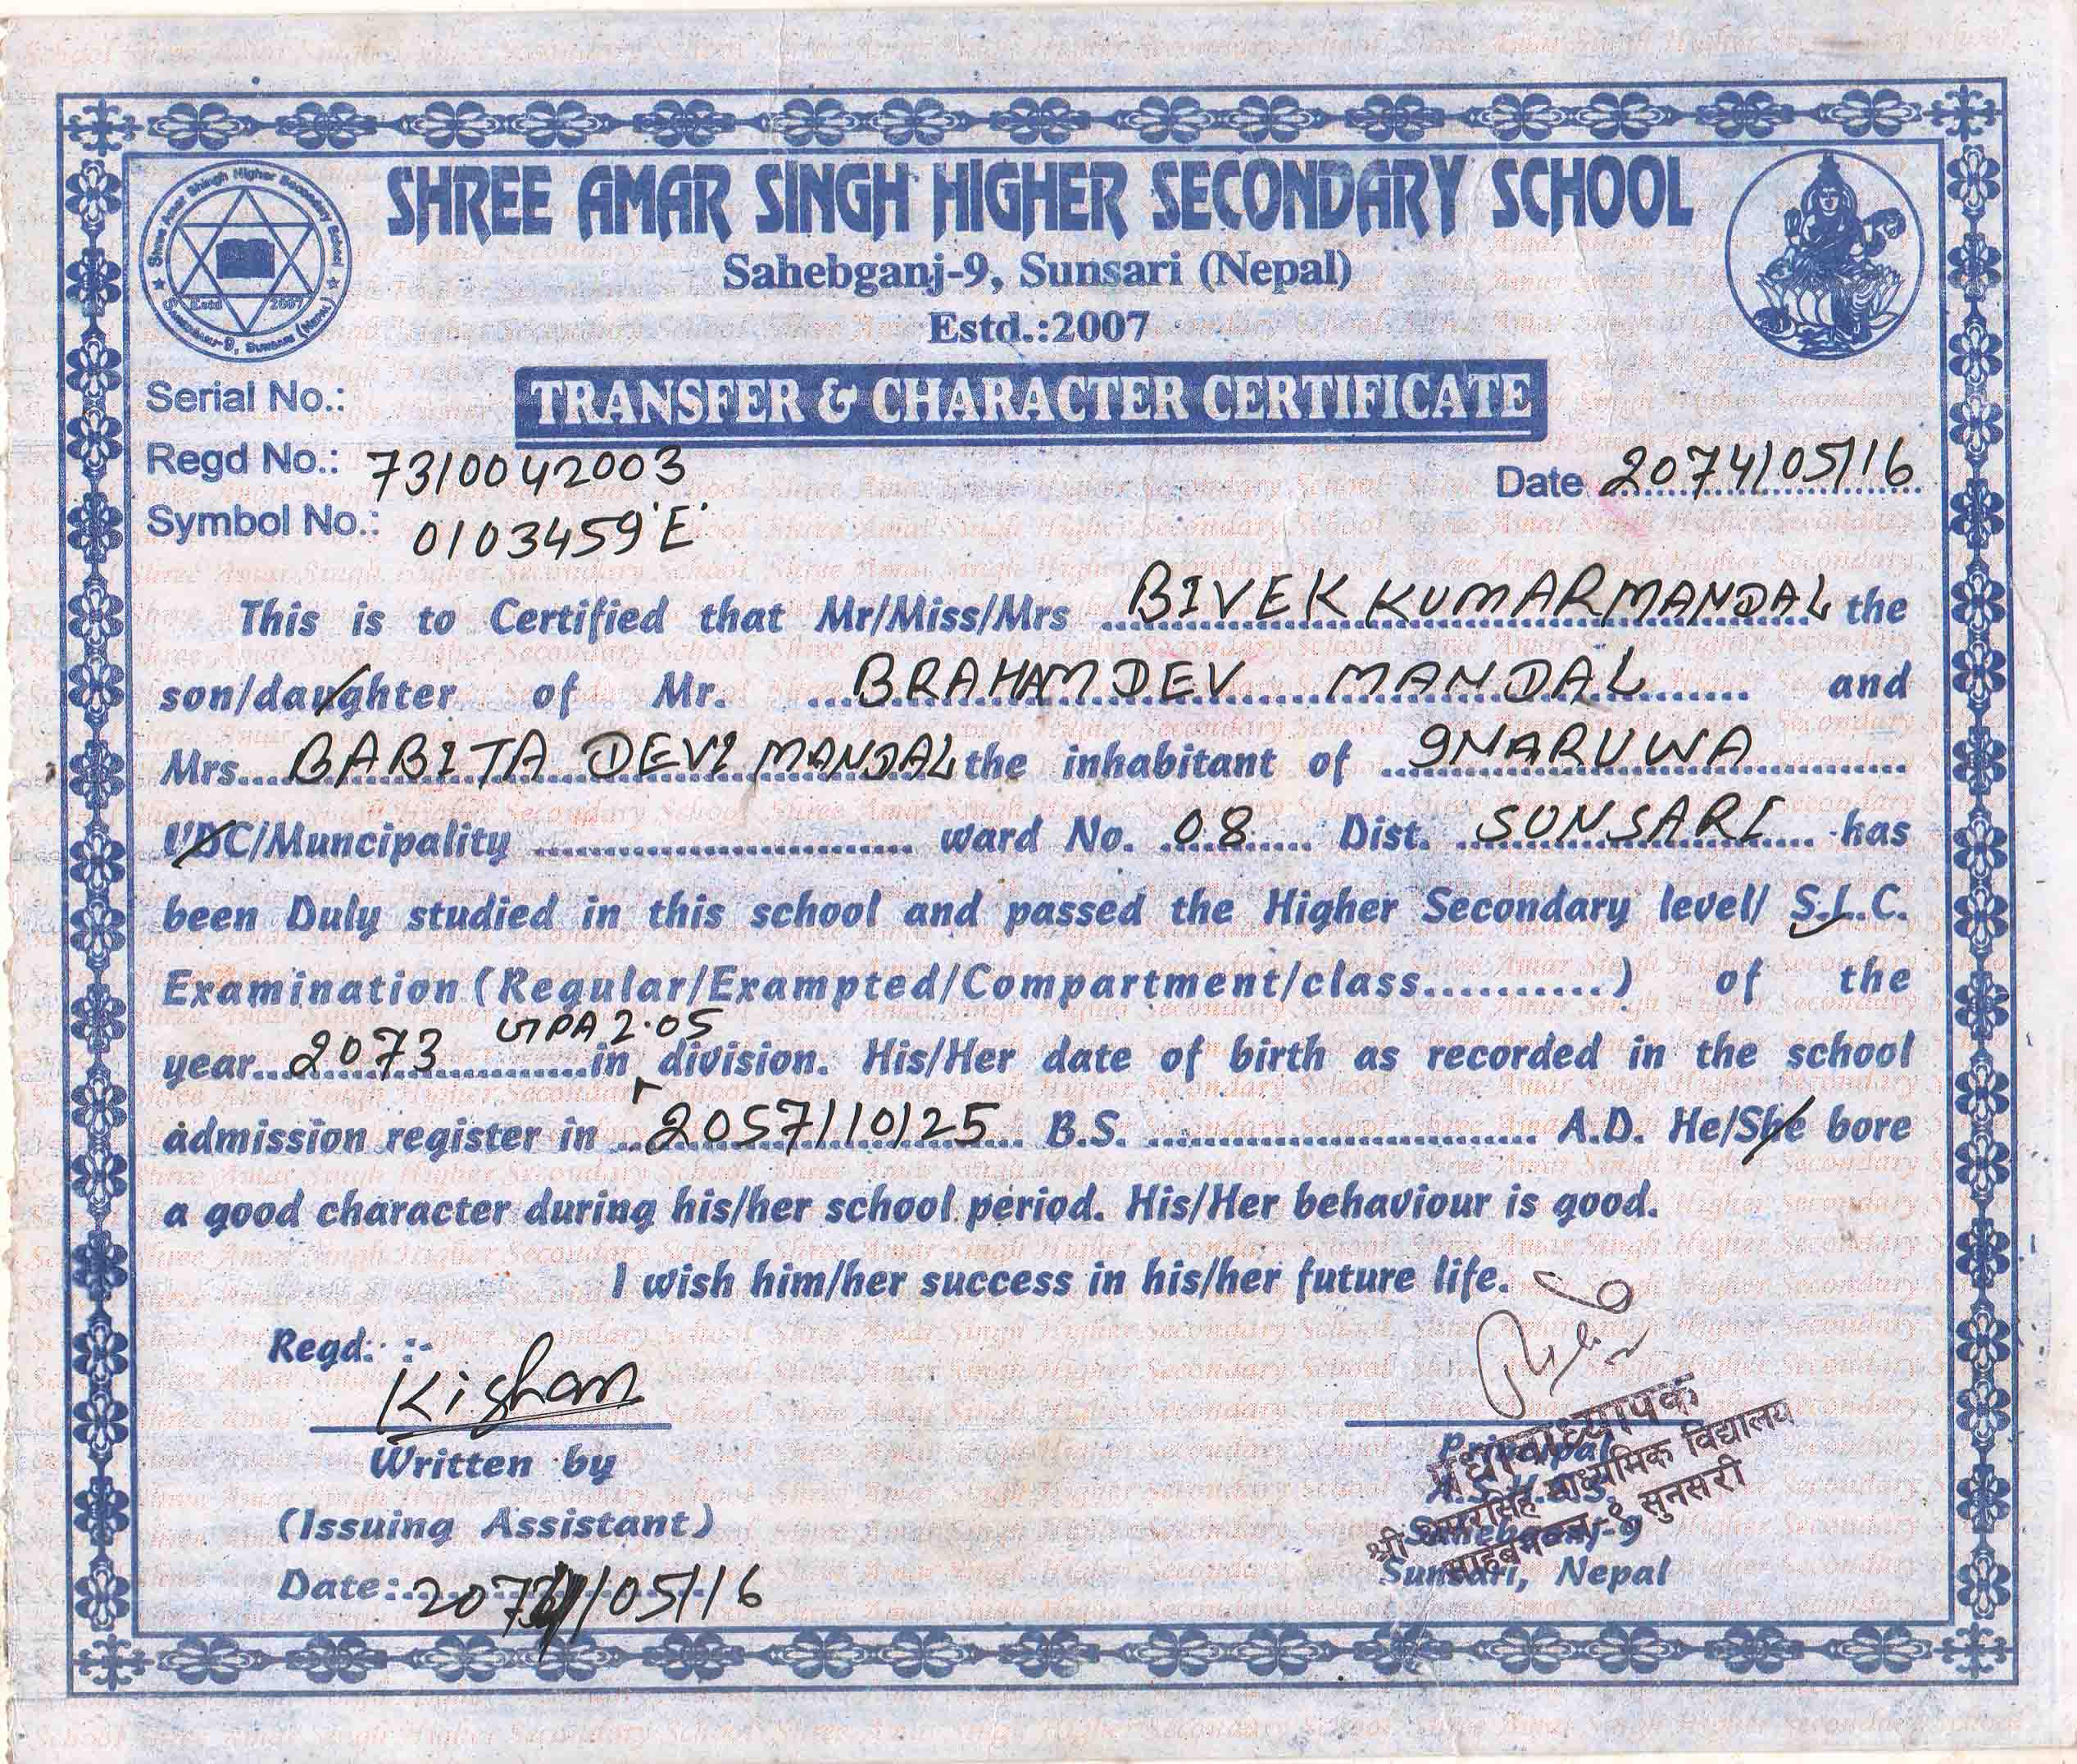 SHREE AMAR SINGH HIGHER SECONDARY SCHOOL
Sahebganj-9, Sunsari (Nepal)
Estd.:2007
TRANSFER & CHARACTER CERTIFICATE
Serial No.:
Regd No.: 7310042003
Date 2074/05/16
Symbol No.: 0103459'E'
This is to Certified that Mr/Miss/Mrs BIVEK KUMAR MANDAL the
son/daughter of Mr. BRAHAMDEV MANDAL and
Mrs. BABITA DEVI MANDAL the inhabitant of INARUWA
VDC/Muncipality ward No. 08 Dist. SUNSARI has
been Duly studied in this school and passed the Higher Secondary level/ S.L.C.
Examination (Regular/Exampted/Compartment/class..........) of the
year 2073 in GPA 2.05 division. His/Her date of birth as recorded in the school
admission register in 2057/10/25 B.S. A.D. He/She bore
a good character during his/her school period. His/Her behaviour is good.
I wish him/her success in his/her future life.
Regd: :-
Kishan
Written by
(Issuing Assistant)
Date: 2074/05/16
Principal
A.S.H.S.S.
Sahebganj-9
Sunsari, Nepal
प्रधानाध्यापक
श्री अमरसिंह माध्यमिक विद्यालय
साहेबगन्ज-९ सुनसरी